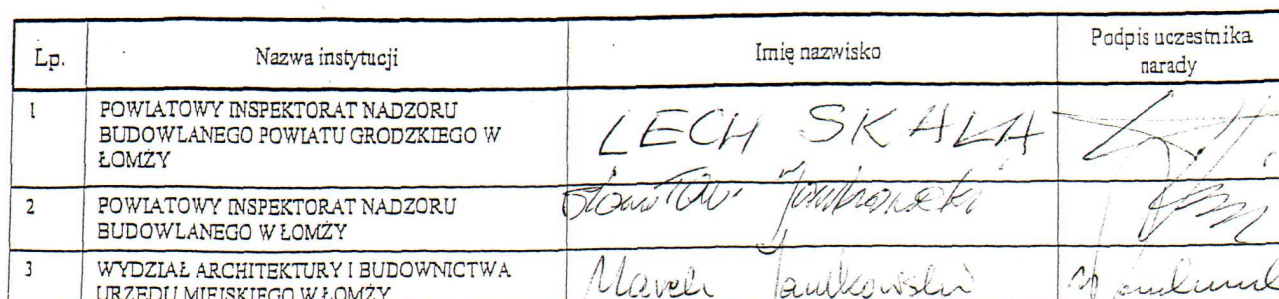 Lp. Nazwa instytucji Imię nazwisko Podpis uczestnika
narady
1 POWIATOWY INSPEKTORAT NADZORU
BUDOWLANEGO POWIATU GRODZKIEGO W
ŁOMŻY
LECH SKALA
2 POWIATOWY INSPEKTORAT NADZORU
BUDOWLANEGO W ŁOMŻY
3 WYDZIAŁ ARCHITEKTURY I BUDOWNICTWA
URZĘDU MIEJSKIEGO W ŁOMŻY
Marek